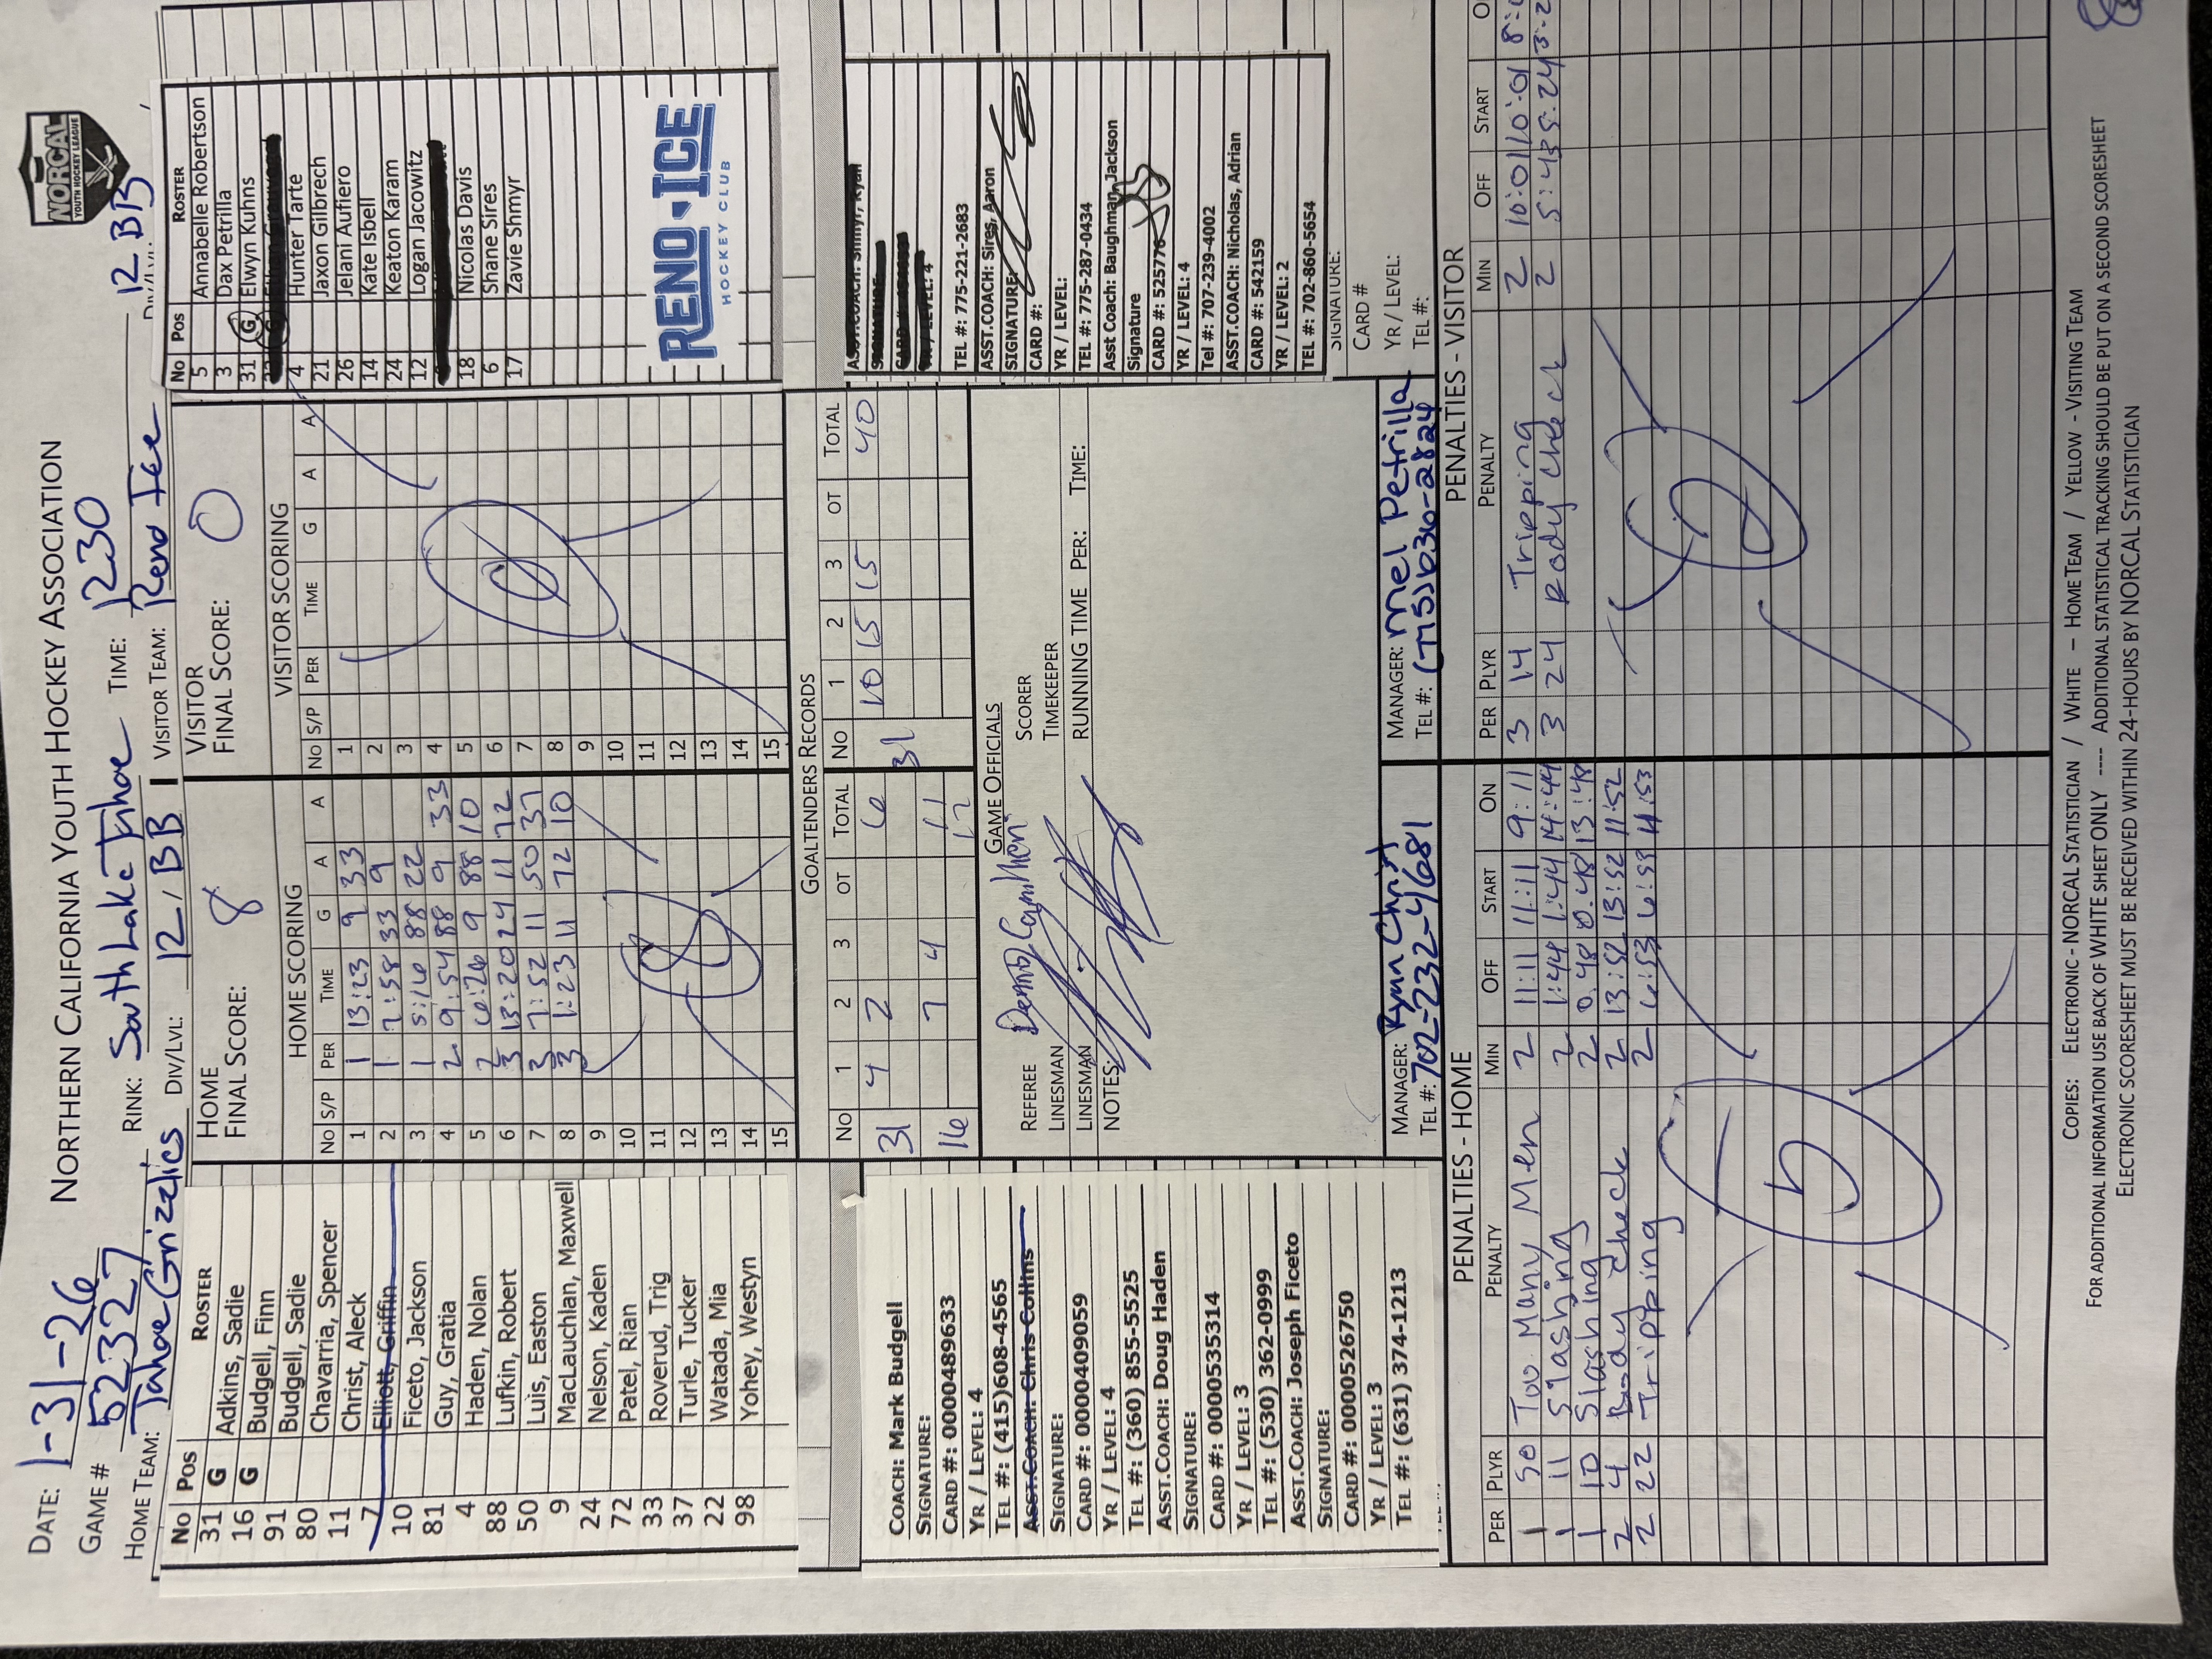 NORTHERN CALIFORNIA YOUTH HOCKEY ASSOCIATION
NORCAL
YOUTH HOCKEY LEAGUE
DATE: 1-31-26
GAME # 52327 RINK: South Lake Tahoe TIME: 1230 12 BB
HOME TEAM: Tahoe Grizzlies DIV/LVL: 12/BB VISITOR TEAM: Reno Ice
No Pos ROSTER
31 G Adkins, Sadie
16 G Budgell, Finn
91 Budgell, Sadie
80 Chavarria, Spencer
11 Christ, Aleck
7 Elliott, Griffin
10 Ficeto, Jackson
81 Guy, Gratia
4 Haden, Nolan
88 Lufkin, Robert
50 Luis, Easton
9 MacLauchlan, Maxwell
24 Nelson, Kaden
72 Patel, Rian
33 Roverud, Trig
37 Turle, Tucker
22 Watada, Mia
98 Yohey, Westyn
HOME
FINAL SCORE: 8
HOME SCORING
No S/P PER TIME G A A
1 1 13:23 9 33
2 1 7:58 33 9
3 1 5:16 88 22
4 2 9:54 88 9 33
5 2 6:26 9 88 10
6 3 13:20 24 11 72
7 3 7:52 11 50 37
8 3 1:23 11 72 10
9
10
11
12
13
14
15
VISITOR
FINAL SCORE: 0
VISITOR SCORING
No S/P PER TIME G A A
1
2
3
4
5
6
7
8
9
10
11
12
13
14
15
No Pos ROSTER
5 Annabelle Robertson
3 Dax Petrilla
31 G Elwyn Kuhns
4 Hunter Tarte
21 Jaxon Gilbrech
26 Jelani Aufiero
14 Kate Isbell
24 Keaton Karam
12 Logan Jacowitz
18 Nicolas Davis
6 Shane Sires
17 Zavie Shmyr
RENO ICE
HOCKEY CLUB
GOALTENDERS RECORDS
No 1 2 3 OT TOTAL No 1 2 3 OT TOTAL
31 4 2 6 31 10 15 15 40
16 7 4 11
COACH: Mark Budgell
SIGNATURE:
CARD #: 0000489633
YR / LEVEL: 4
TEL #: (415)608-4565
ASST.COACH: Chris Collins
SIGNATURE:
CARD #: 0000409059
YR / LEVEL: 4
TEL #: (360) 855-5525
ASST.COACH: Doug Haden
SIGNATURE:
CARD #: 0000535314
YR / LEVEL: 3
TEL #: (530) 362-0999
ASST.COACH: Joseph Ficeto
SIGNATURE:
CARD #: 0000526750
YR / LEVEL: 3
TEL #: (631) 374-1213
GAME OFFICIALS
REFEREE SCORER
LINESMAN TIMEKEEPER
LINESMAN RUNNING TIME PER: TIME:
NOTES:
MANAGER: Ryan Christ
TEL #: 702-232-4681
MANAGER: Mel Petrilla
TEL #: (775)636-2824
ASST.COACH: Shmyr, Ryan
SIGNATURE:
YR / LEVEL: 4
TEL #: 775-221-2683
ASST.COACH: Sires, Aaron
SIGNATURE:
CARD #:
YR / LEVEL:
TEL #: 775-287-0434
Asst Coach: Baughman, Jackson
Signature
CARD #: 525776
YR / LEVEL: 4
Tel #: 707-239-4002
ASST.COACH: Nicholas, Adrian
CARD #: 542159
YR / LEVEL: 2
TEL #: 702-860-5654
SIGNATURE:
CARD #
YR / LEVEL:
TEL #:
PENALTIES - HOME
PER PLYR PENALTY MIN OFF START ON
1 50 Too Many Men 2 11:11 11:11 9:11
1 11 Slashing 2 1:44 1:44 14:44
1 10 Slashing 2 0:48 0:48 13:48
2 4 Body Check 2 13:52 13:52 11:52
2 22 Tripping 2 6:53 6:53 4:53
PENALTIES - VISITOR
PER PLYR PENALTY MIN OFF START
3 14 Tripping 2 10:01 10:01
3 24 Body Check 2 5:24
COPIES: ELECTRONIC - NORCAL STATISTICIAN / WHITE – HOME TEAM / YELLOW - VISITING TEAM
FOR ADDITIONAL INFORMATION USE BACK OF WHITE SHEET ONLY ---- ADDITIONAL STATISTICAL TRACKING SHOULD BE PUT ON A SECOND SCORESHEET
ELECTRONIC SCORESHEET MUST BE RECEIVED WITHIN 24-HOURS BY NORCAL STATISTICIAN